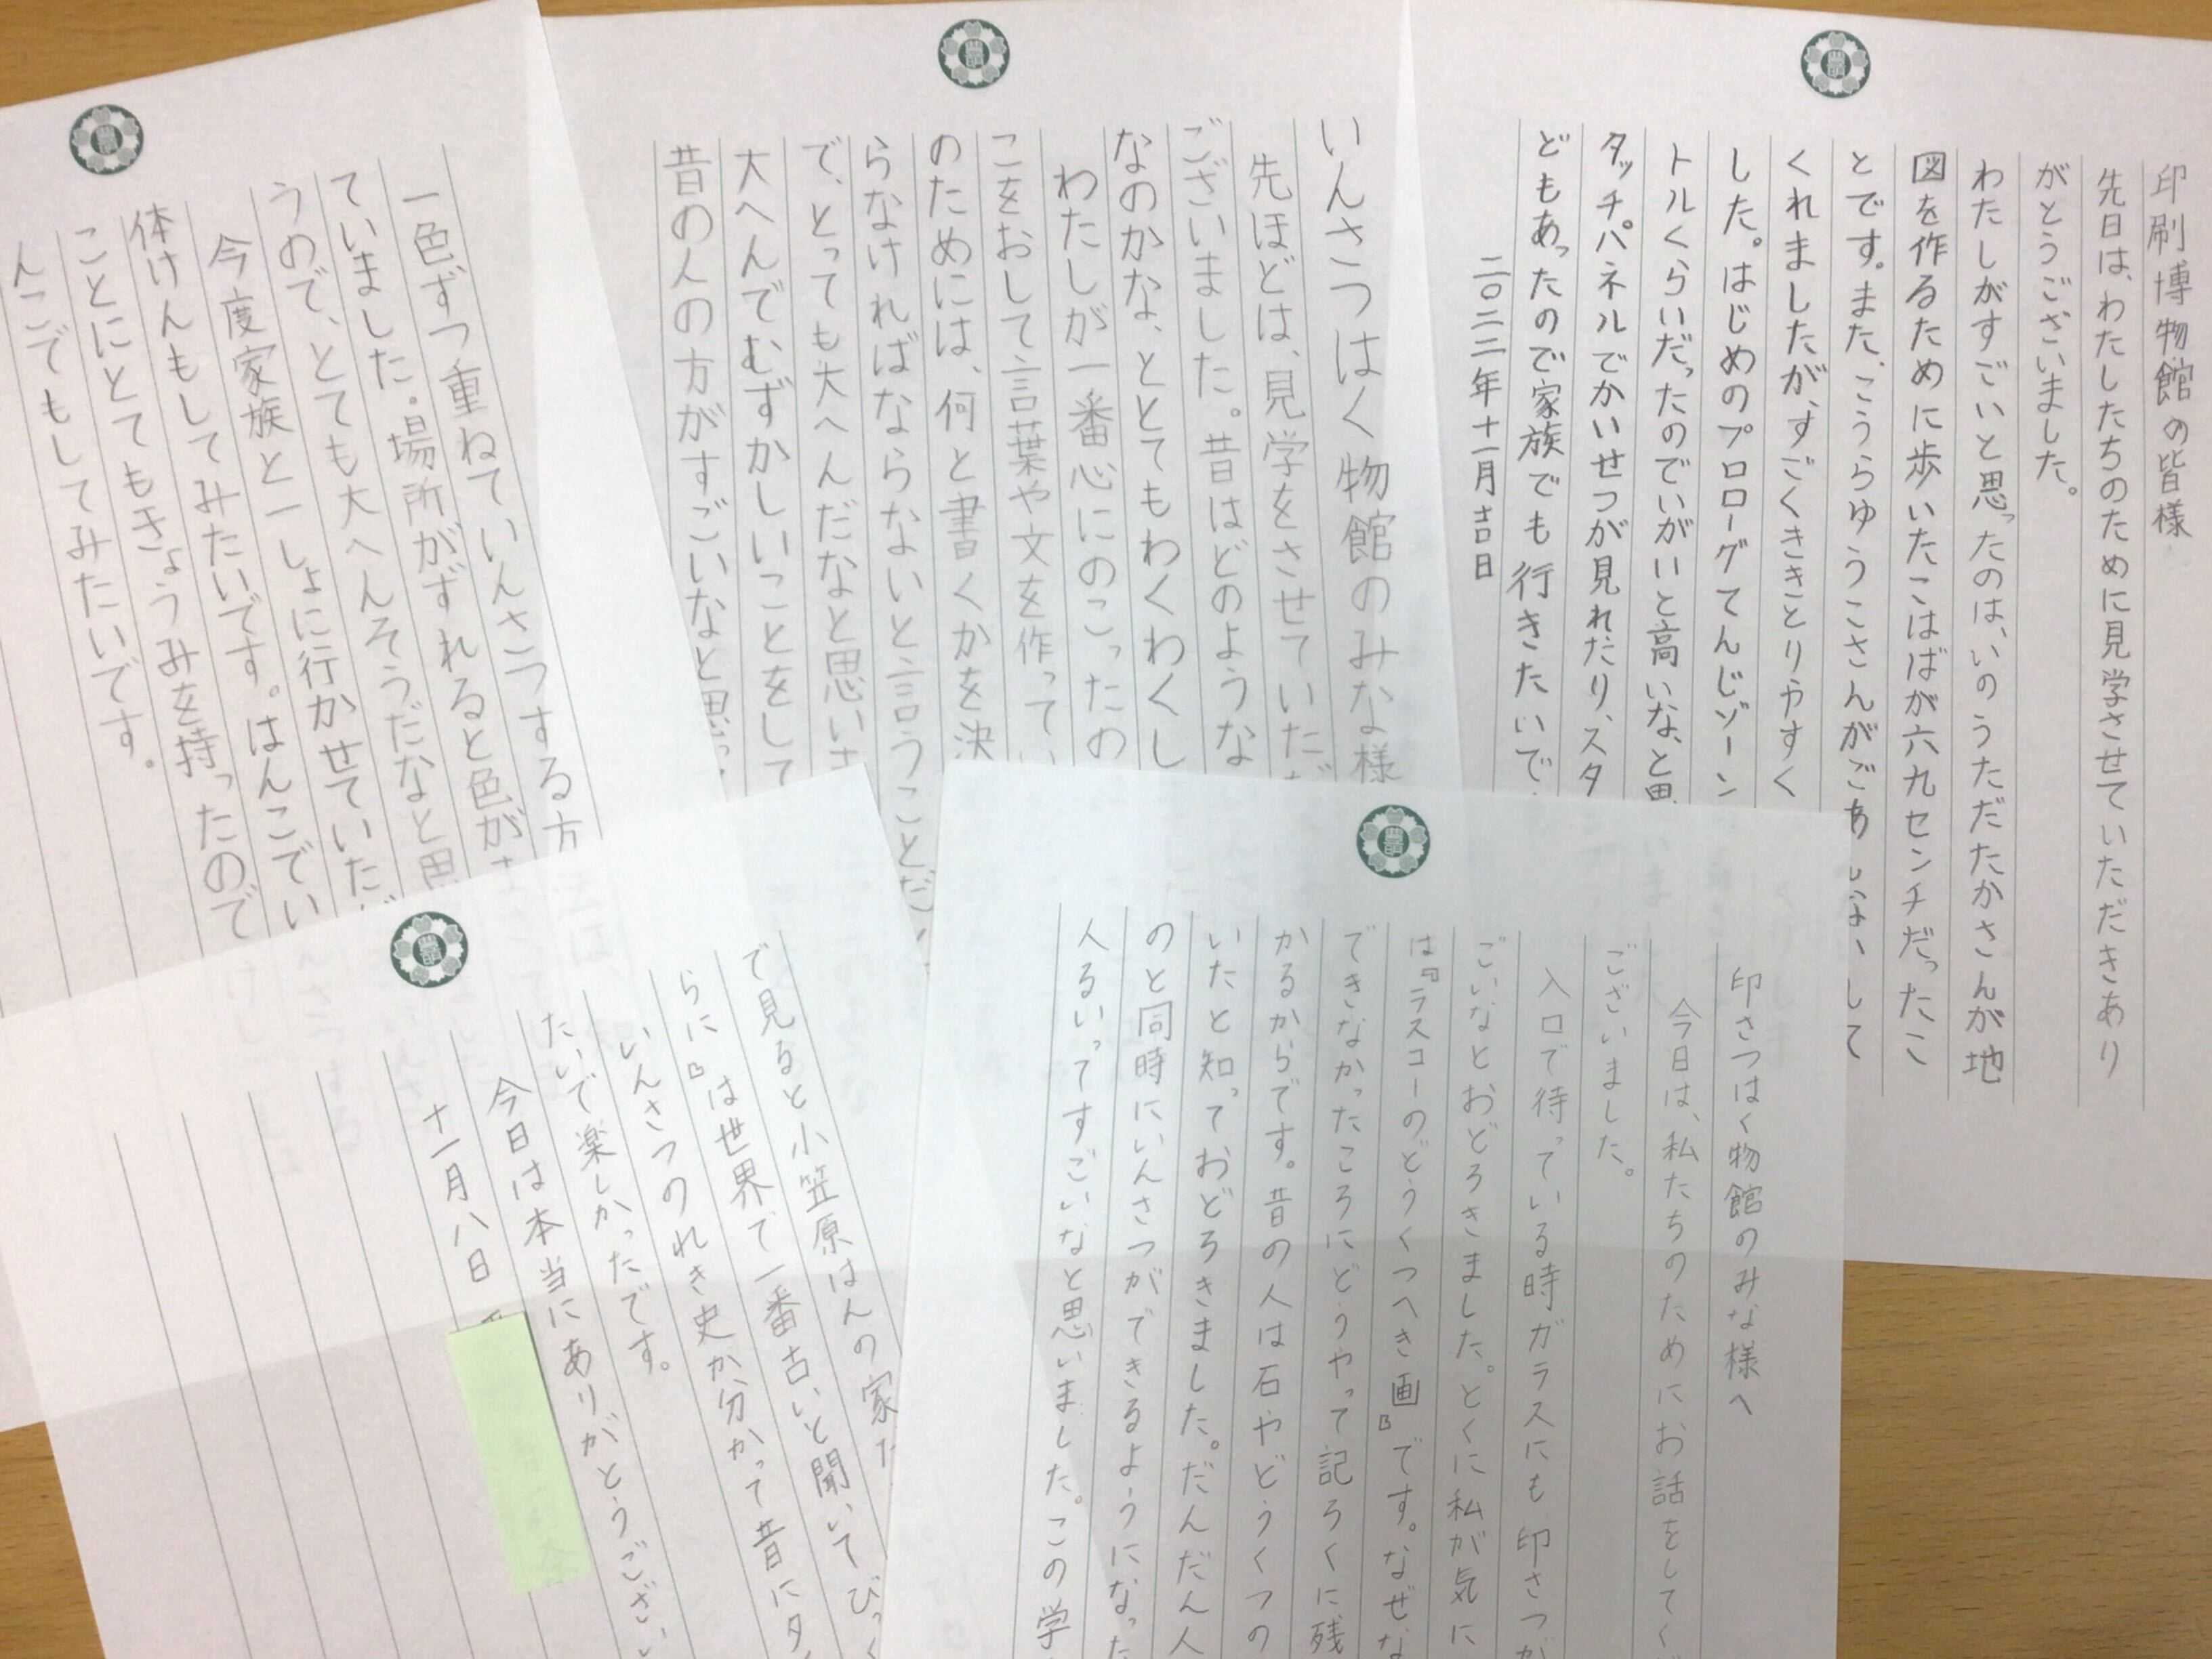 印刷博物館の皆様
先日は、わたしたちのために見学させていただきあり
がとうございました。
わたしがすごいと思ったのは、いのうただたかさんが地
図を作るために歩いたこはばが六九センチだったこ
とです。また、こうらゆうこさんがごあ して
くれましたが、すごくききとりやすく
した。はじめのプロローグてんじゾーン
トルくらいだったのでいがいと高いな、と思
タッチパネルでかいせつが見れたり、スタ
どもあったので家族でも行きたいで
二〇二二年十一月吉日
いんさつはく物館のみな様
先ほどは、見学をさせていただ
ございました。昔はどのような
なのかな、ととてもわくわくし
わたしが一番心にのこったの
こをおして言葉や文を作ってい
のためには、何と書くかを決
らなければならないと言うことだ
で、とっても大へんだなと思いま
大へんでむずかしいことをして
昔の人の方がすごいなと思っ
一色ずつ重ねていんさつする方
ていました。場所がずれると色が
うので、とても大へんそうだなと思
今度家族と一しょに行かせていただ
体けんもしてみたいです。はんこでい
ことにとてもきょうみを持ったので
んこでもしてみたいです。
印さつはく物館のみな様へ
今日は、私たちのためにお話をしてく
ございました。
入口で待っている時ガラスにも印さつが
ごいなとおどろきました。とくに私が気に
は『ラスコーのどうくつへき画』です。なぜな
できなかったころにどうやって記ろくに残
かるからです。昔の人は石やどうくつの
いたと知っておどろきました。だんだん人
のと同時にいんさつができるようになった
人るいってすごいなと思いました。この学
で見ると小笠原はんの家た
らに』は世界で一番古いと聞いてびっく
いんさつのれき史が分かって昔にタ
たいで楽しかったです。
今日は本当にありがとうござい
十一月八日